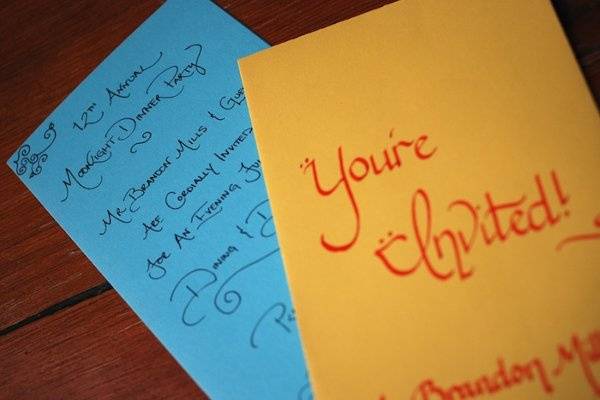 12th Annual
Moonlight Dinner Party
Mr. Brandon Mills &
Are Cordially Invited
For An Evening
Dining &
You're
Invited!
Brandon